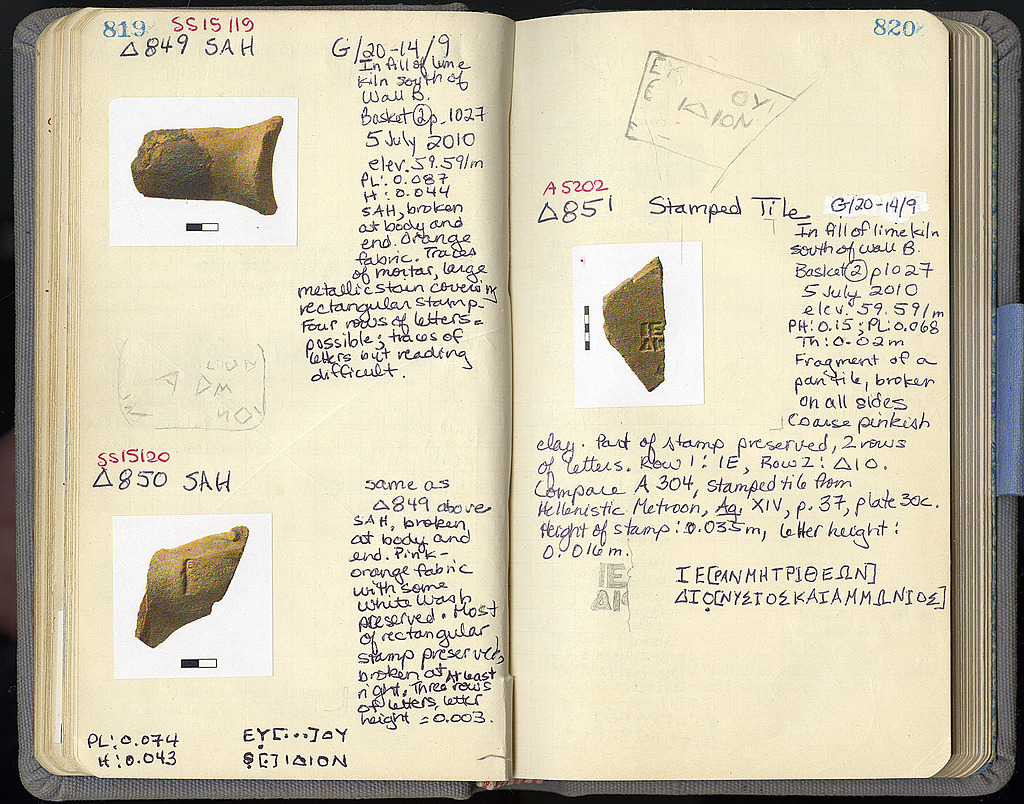 819
SS15119
Δ849 SAH
G/20-14/9
In fill of lime
kiln south of
Wall B.
Basket ② p. 1027
5 July 2010
elev. 59.591m
PL: 0.087
H: 0.044
SAH, broken
at body and
end. Orange
fabric. Traces
of mortar, large
metallic stain covering
rectangular stamp.
Four rows of letters =
possible; traces of
letters but reading
difficult.
SS15120
Δ850 SAH
same as
Δ849 above
SAH, broken
at body and
end. Pink-
orange fabric
with some
white wash
preserved. Most
of rectangular
stamp preserved,
broken at At least
right. Three rows
of letters, letter
height = 0.003.
PL: 0.074
H: 0.043
ΕΥ̣[...]ΟΥ
Ο̣[.]ΙΔΙΟΝ
820
ΟΥ
ΙΔΙΟΝ
A5202
Δ851 Stamped Tile G/20-14/9
In fill of lime kiln
south of wall B.
Basket ② p1027
5 July 2010
elev. 59.591m
PH: 0.15; PL: 0.068
Th: 0.02m
Fragment of a
pan tile, broken
on all sides
Coarse pinkish
clay. Part of stamp preserved, 2 rows
of letters. Row 1: ΙΕ, Row 2: ΔΙΟ.
Compare A 304, stamped tile from
Hellenistic Metroon, Ag. XIV, p. 37, plate 30c.
Height of stamp: 0.035m, letter height:
0.016m.
ΙΕ
ΔΙΟ
ΙΕ[ΡΑΝΜΗΤΡΙΘΕΩΝ]
ΔΙΟ̣[ΝΥΣΙΟΣΚΑΙΑΜΜΩΝΙΟΣ]